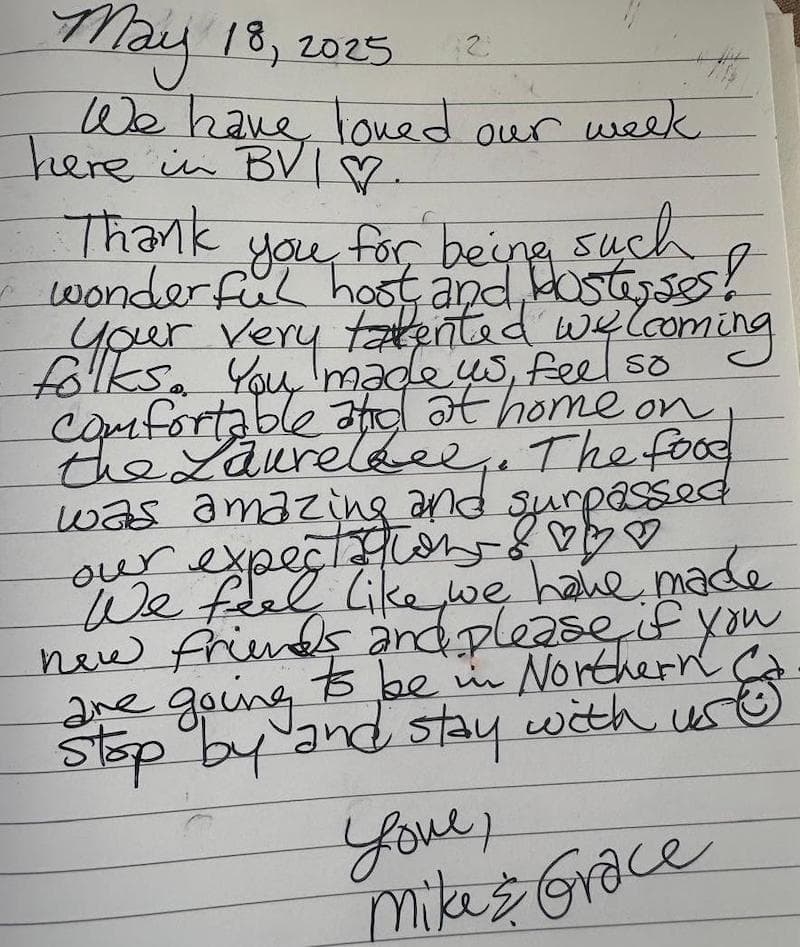 May 18, 2025
We have loved our week
here in BVI ♡.
Thank you for being such
wonderful host and Hostesses!
your very talented welcoming
folks. You made us feel so
comfortable and at home on
the Laurelee. The food
was amazing and surpassed
our expectations ♡♡♡
We feel like we have made
new friends and please if you
are going to be in Northern Ca.
stop by and stay with us ☺
Love,
Mike & Grace